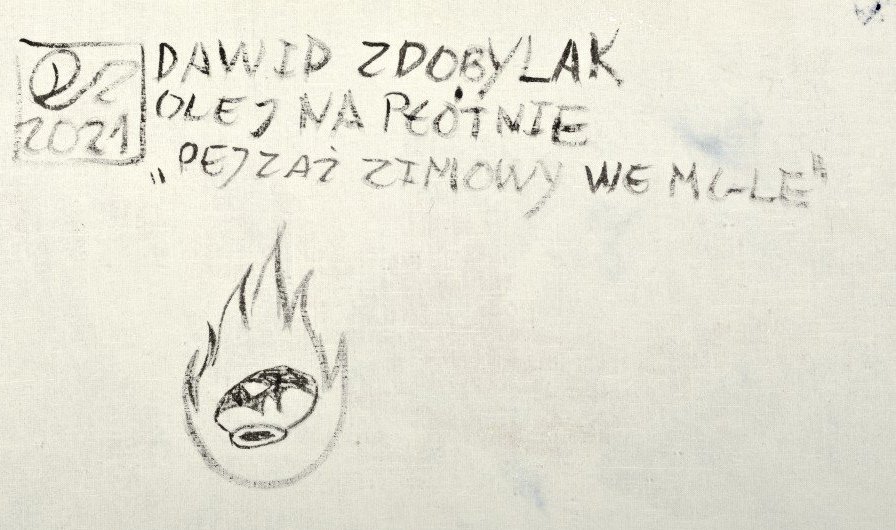 DZ
2021
DAWID ZDOBYLAK
OLEJ NA PŁÓTNIE
„PEJZAŻ ZIMOWY WE MGLE"